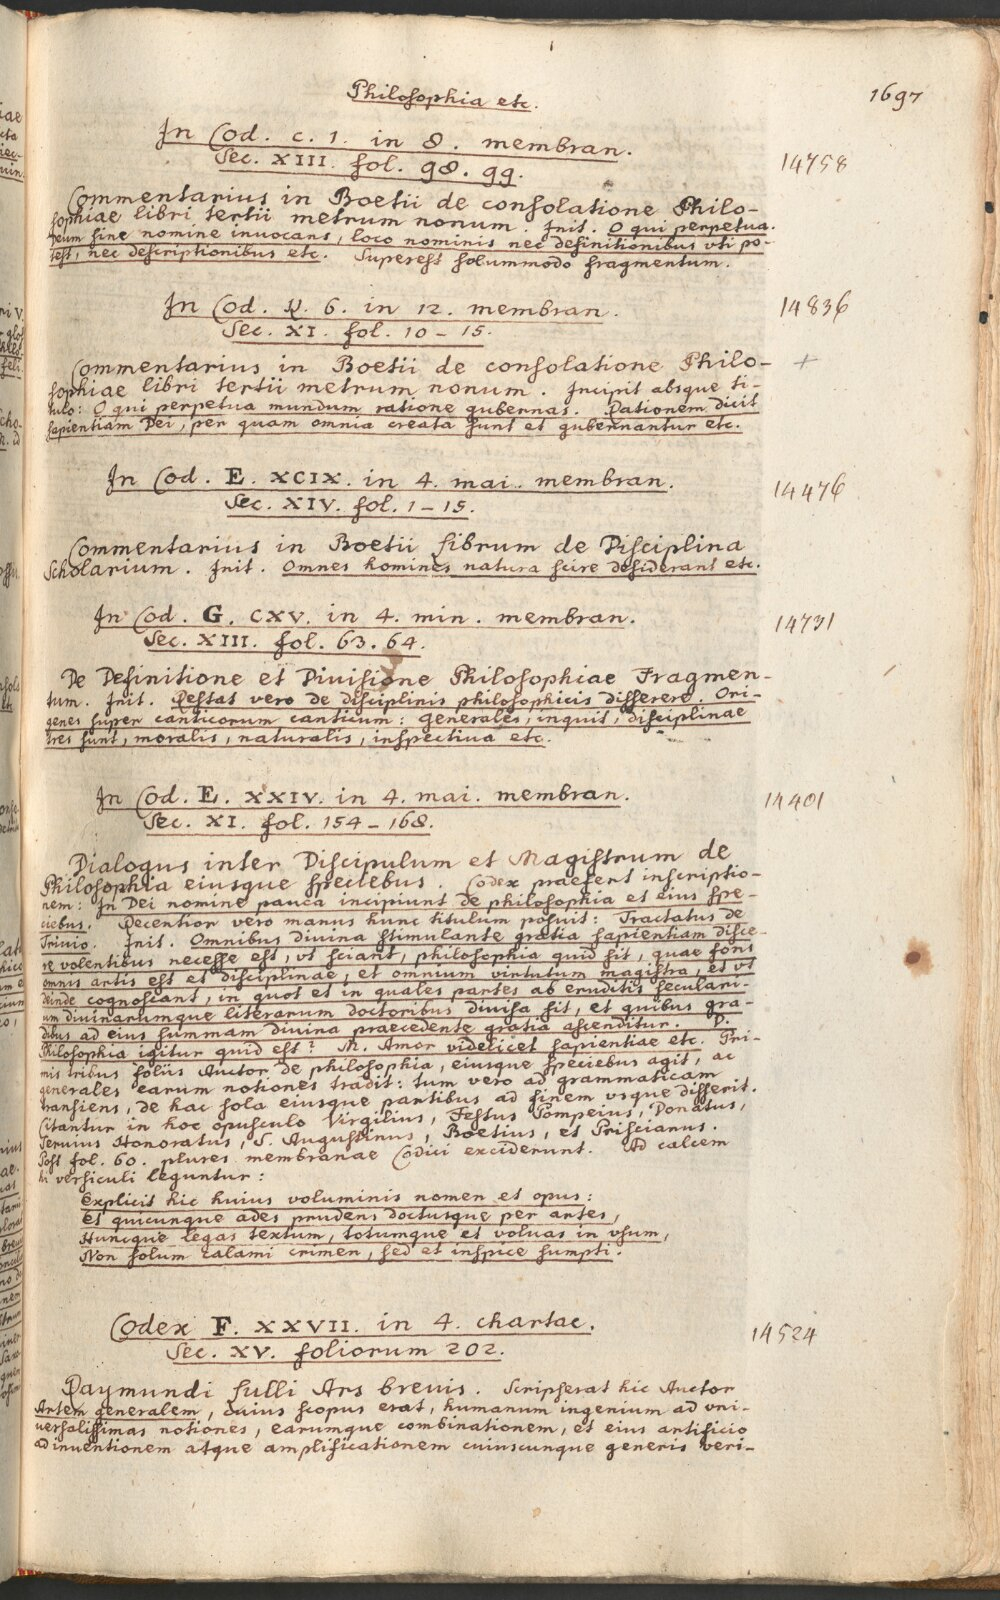 Philosophia etc.
1697
In Cod. c. 1. in 8. membran.
Sec. XIII. fol. 98. 99.
14758
Commentarius in Boetii de consolatione Philo-
sophiae libri tertii metrum nonum. Init. O qui perpetua.
Deum sine nomine inuocans, loco nominis nec definitionibus vti po-
test, nec descriptionibus etc. Superest solummodo fragmentum.
In Cod. 6. in 12. membran.
Sec. XI. fol. 10-15.
14836
Commentarius in Boetii de consolatione Philo-
+
sophiae libri tertii metrum nonum. Incipit absque ti-
tulo: O qui perpetua mundum ratione gubernas. Rationem dicit
sapientiam Dei, per quam omnia creata sunt et gubernantur etc.
In Cod. E. XCIX. in 4. mai. membran.
Sec. XIV. fol. 1-15.
14476
Commentarius in Boetii librum de Disciplina
Scholarium. Init. Omnes homines natura scire desiderant etc.
In Cod. G. CXV. in 4. min. membran.
Sec. XIII. fol. 63. 64.
14731
De Definitione et Diuisione Philosophiae Fragmen-
tum. Init. Restat vero de disciplinis philosophicis disserere. Ori-
genes super canticorum canticum: generales, inquit, disciplinae
tres sunt, moralis, naturalis, inspectiua etc.
In Cod. E. XXIV. in 4. mai. membran.
Sec. XI. fol. 154-168.
14401
Dialogus inter Discipulum et Magistrum de
Philosophia eiusque speciebus. Codex praefert inscriptio-
nem: In Dei nomine pauca incipiunt de philosophia et eius spe-
ciebus. Recentior vero manus hunc titulum posuit: Tractatus de
Triuio. Init. Omnibus diuina stimulante gratia sapientiam disce-
re volentibus necesse est, vt sciant, philosophia quid sit, quae fons
omnis artis est et disciplinae, et omnium virtutum magistra, et vt
deinde cognoscant, in quot et in quales partes ab eruditis seculari-
um diuinarumque literarum doctoribus diuisa sit, et quibus gra-
dibus ad eius summam diuina praecedente gratia ascenditur. D.
Philosophia igitur quid est? M. Amor videlicet sapientiae etc. Pri-
mis tribus foliis Auctor de philosophia, eiusque speciebus agit, ac
generales earum notiones tradit: tum vero ad grammaticam
transiens, de hac sola eiusque partibus ad finem vsque disserit.
Citantur in hoc opusculo Virgilius, Festus Pompeius, Donatus,
Seruius Honoratus, S. Augustinus, Boetius, et Priscianus.
Post fol. 60. plures membranae Codici exciderunt. Ad calcem
hi versiculi leguntur:
Explicit hic huius voluminis nomen et opus:
Et quicunque ades prudens doctusque per artes,
Huncque legas textum, totumque et voluas in vsum,
Non solum calami crimen, sed et inspice sumpti.
Codex F. XXVII. in 4. chartac.
Sec. XV. foliorum 202.
14524
Raymundi Lulli Ars breuis. Scripserat hic Auctor
Artem generalem, cuius scopus erat, humanum ingenium ad vni-
uersalissimas notiones, earumque combinationem, et eius artificio
ad inuentionem atque amplificationem cuiuscunque generis veri-